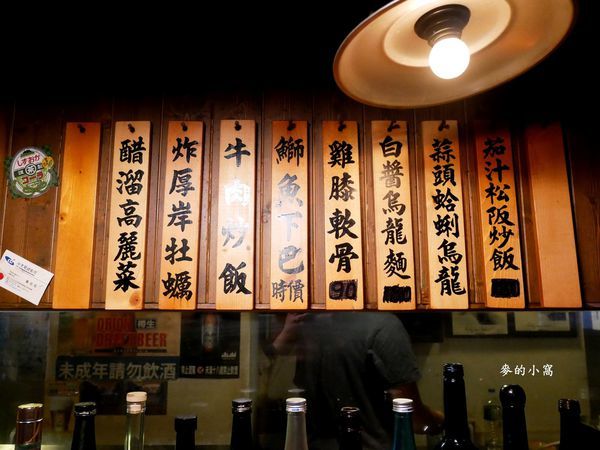 醋溜高麗菜
炸厚岸牡蠣
牛肉炒飯
鰤魚下巴 時價
雞膝軟骨 90
白醬烏龍麵
蒜頭蛤蜊烏龍
茄汁松阪炒飯
しずおか
ORION 樽生
DRAFT BEER
未成年請勿飲酒
麥的小窩